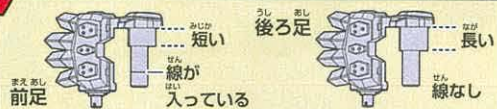 みじか
短い
せん
線が
はい
入っている
まえ あし
前足
うし あし
後ろ足
なが
長い
せん
線なし